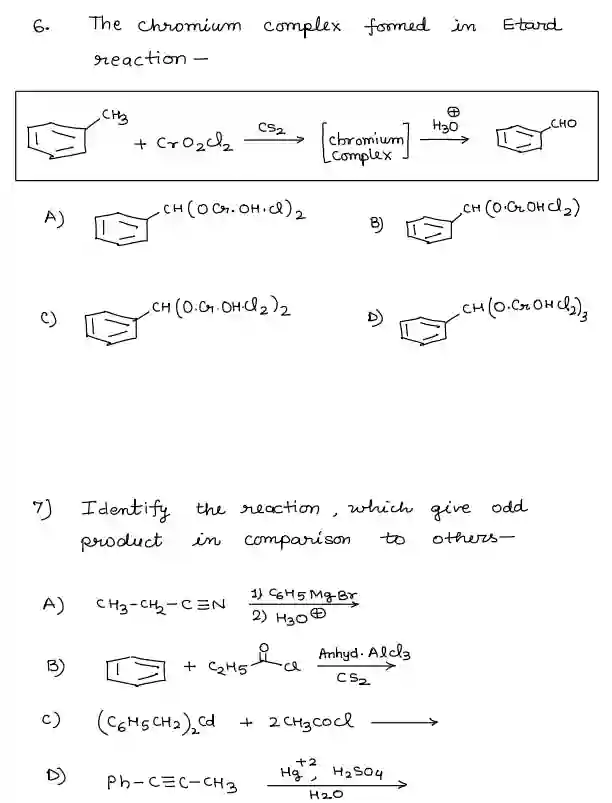 6. The chromium complex formed in Etard
reaction –
CH3 + CrO2Cl2 CS2 → [chromium complex] H3O⊕ → CHO
A) CH(OCr.OH.Cl)2
B) CH(O.CrOHCl2)
C) CH(O.Cr.OH.Cl2)2
D) CH(O.CrOHCl2)3
7) Identify the reaction, which give odd
product in comparison to others –
A) CH3-CH2-C≡N 1) C6H5MgBr 2) H3O⊕ →
B) + C2H5 O Cl Anhyd. AlCl3 CS2 →
C) (C6H5CH2)2Cd + 2CH3COCl →
D) Ph-C≡C-CH3 Hg+2, H2SO4 H2O →